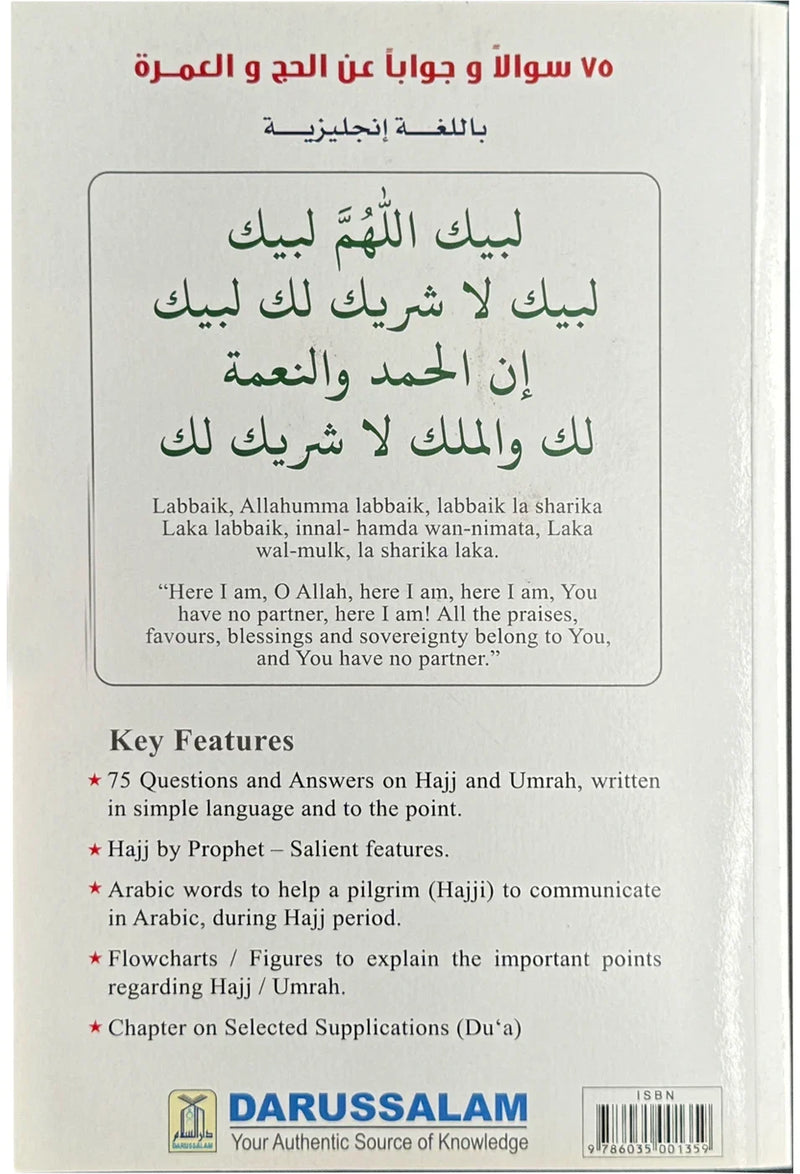 ٧٥ سوالاً و جواباً عن الحج و العمـرة
باللغـــة إنجليزيـــة
لبيك اللّٰهُمَّ لبيك
لبيك لا شريك لك لبيك
إن الحمد والنعمة
لك والملك لا شريك لك
Labbaik, Allahumma labbaik, labbaik la sharika
Laka labbaik, innal- hamda wan-nimata, Laka
wal-mulk, la sharika laka.
“Here I am, O Allah, here I am, here I am, You
have no partner, here I am! All the praises,
favours, blessings and sovereignty belong to You,
and You have no partner.”
Key Features
★ 75 Questions and Answers on Hajj and Umrah, written
in simple language and to the point.
★ Hajj by Prophet – Salient features.
★ Arabic words to help a pilgrim (Hajji) to communicate
in Arabic, during Hajj period.
★ Flowcharts / Figures to explain the important points
regarding Hajj / Umrah.
★ Chapter on Selected Supplications (Du‘a)
دارالسلام
DARUSSALAM
DARUSSALAM
Your Authentic Source of Knowledge
ISBN
9 786035 001359